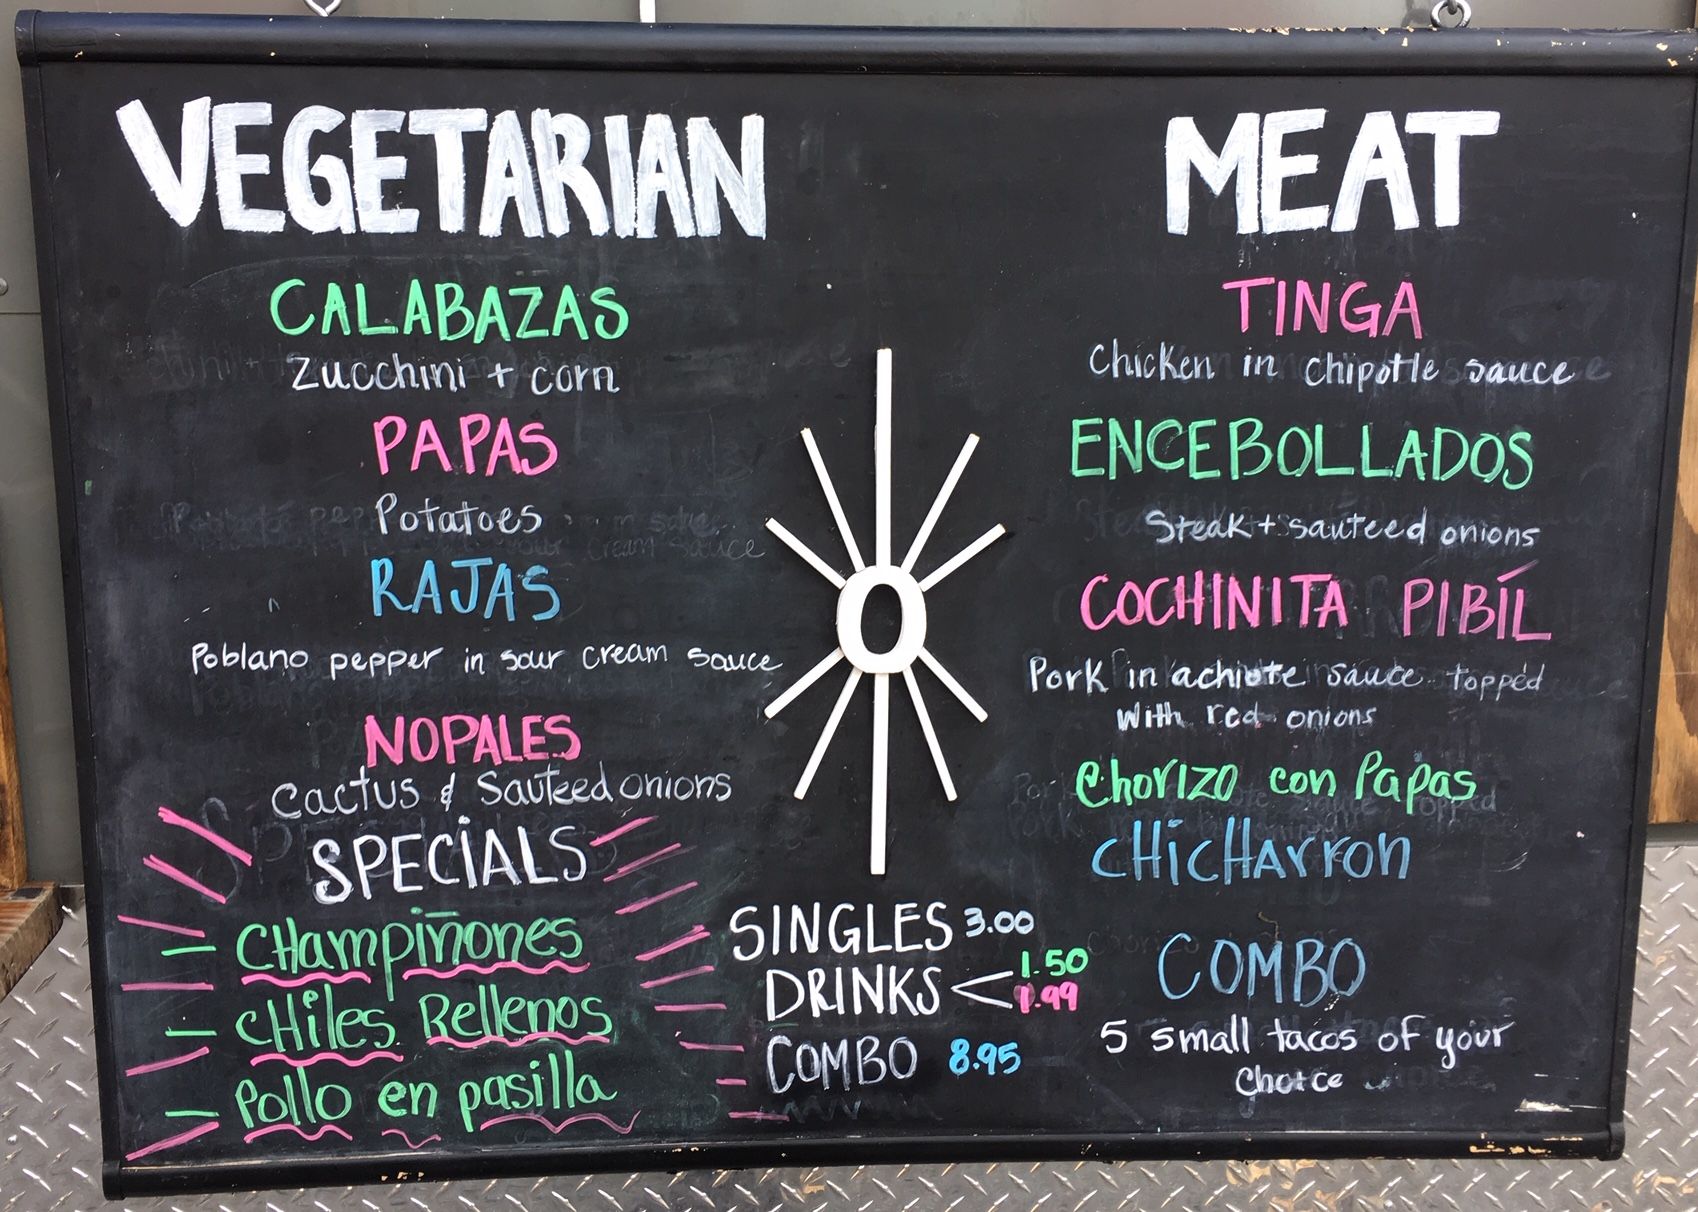 VEGETARIAN
CALABAZAS
Zucchini + corn
PAPAS
Potatoes
RAJAS
Poblano pepper in sour cream sauce
NOPALES
Cactus & Sauteed onions
SPECIALS
CHampiñones
CHiles Rellenos
Pollo en pasilla
SINGLES 3.00
DRINKS < 1.50
1.99
COMBO 8.95
MEAT
TINGA
Chicken in chipotle sauce
ENCEBOLLADOS
Steak + sauteed onions
COCHINITA PIBÍL
Pork in achiote sauce topped
with red onions
Chorizo con Papas
CHicHArron
COMBO
5 small tacos of your
choice